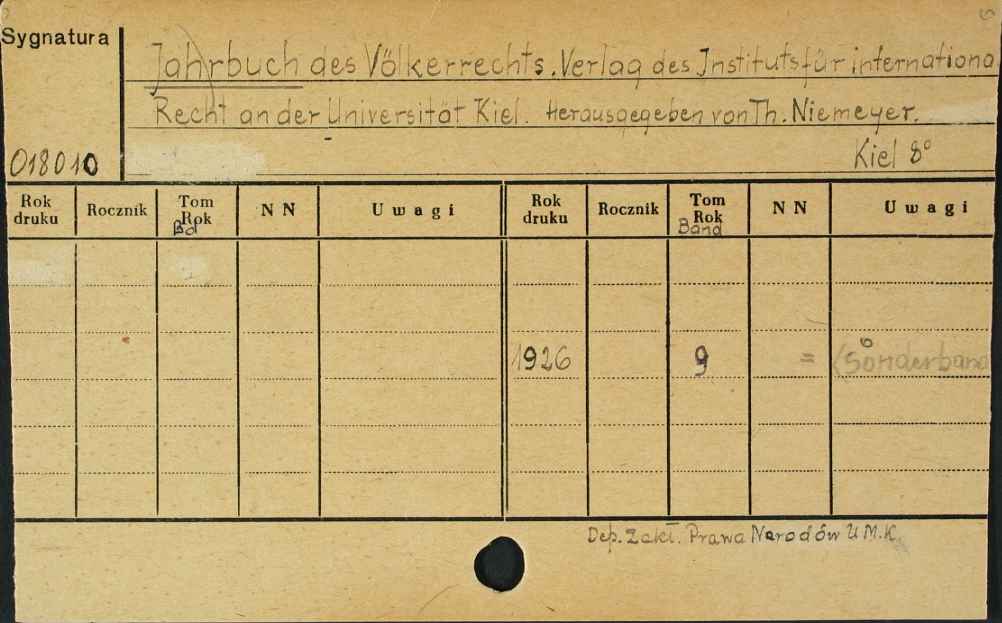 Sygnatura
Jahrbuch des Völkerrechts. Verlag des Instituts für internationa
Recht an der Universität Kiel. Herausgegeben von Th. Niemeyer.
018010 Kiel 8°
Rok druku Rocznik Tom Rok Bd NN Uwagi Rok druku Rocznik Tom Rok Band NN Uwagi
1926 9 = (Sonderband
Dep. Zakł. Prawa Narodów U.M.K.